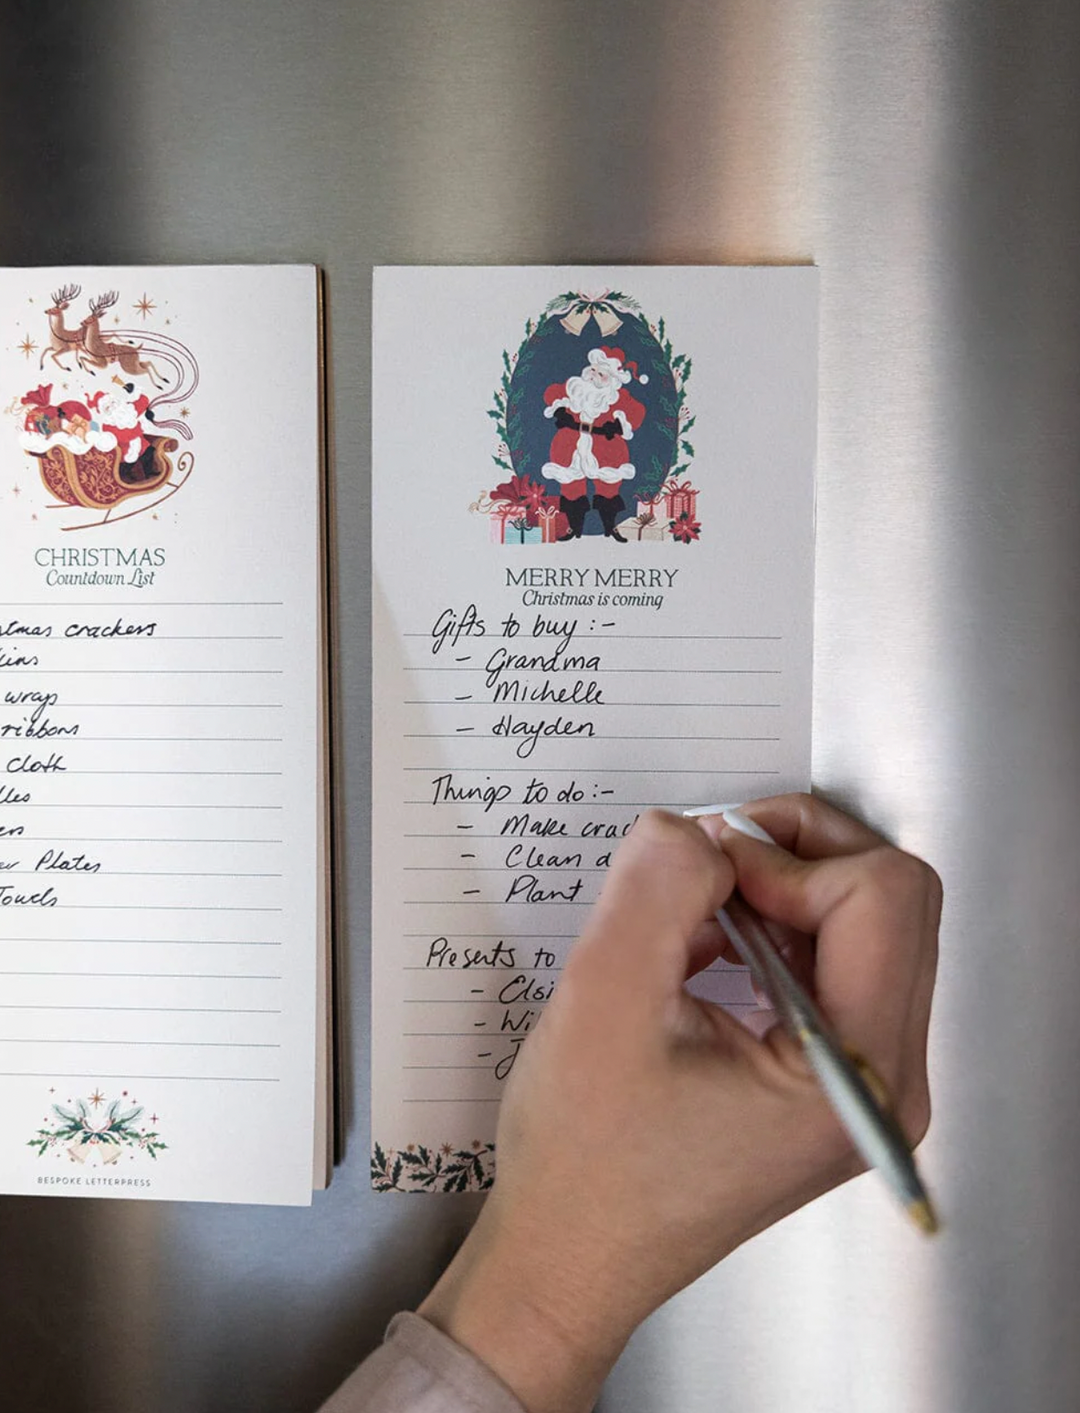 CHRISTMAS
Countdown List
crackers
wrap
ribbons
cloth
Plates
BESPOKE LETTERPRESS
MERRY MERRY
Christmas is coming
Gifts to buy :-
- Grandma
- Michelle
- Hayden
Things to do :-
- Make
- Clean
- Plant
Presents to